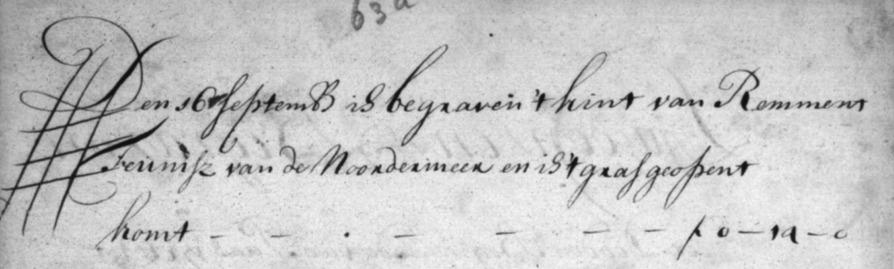 63a
Den 16 septemb is begraven 't kint van Remment
Teunisz van de Noordermeer en is 't graf geopent
komt - - . - - - - ƒ 0 - 12 - 0